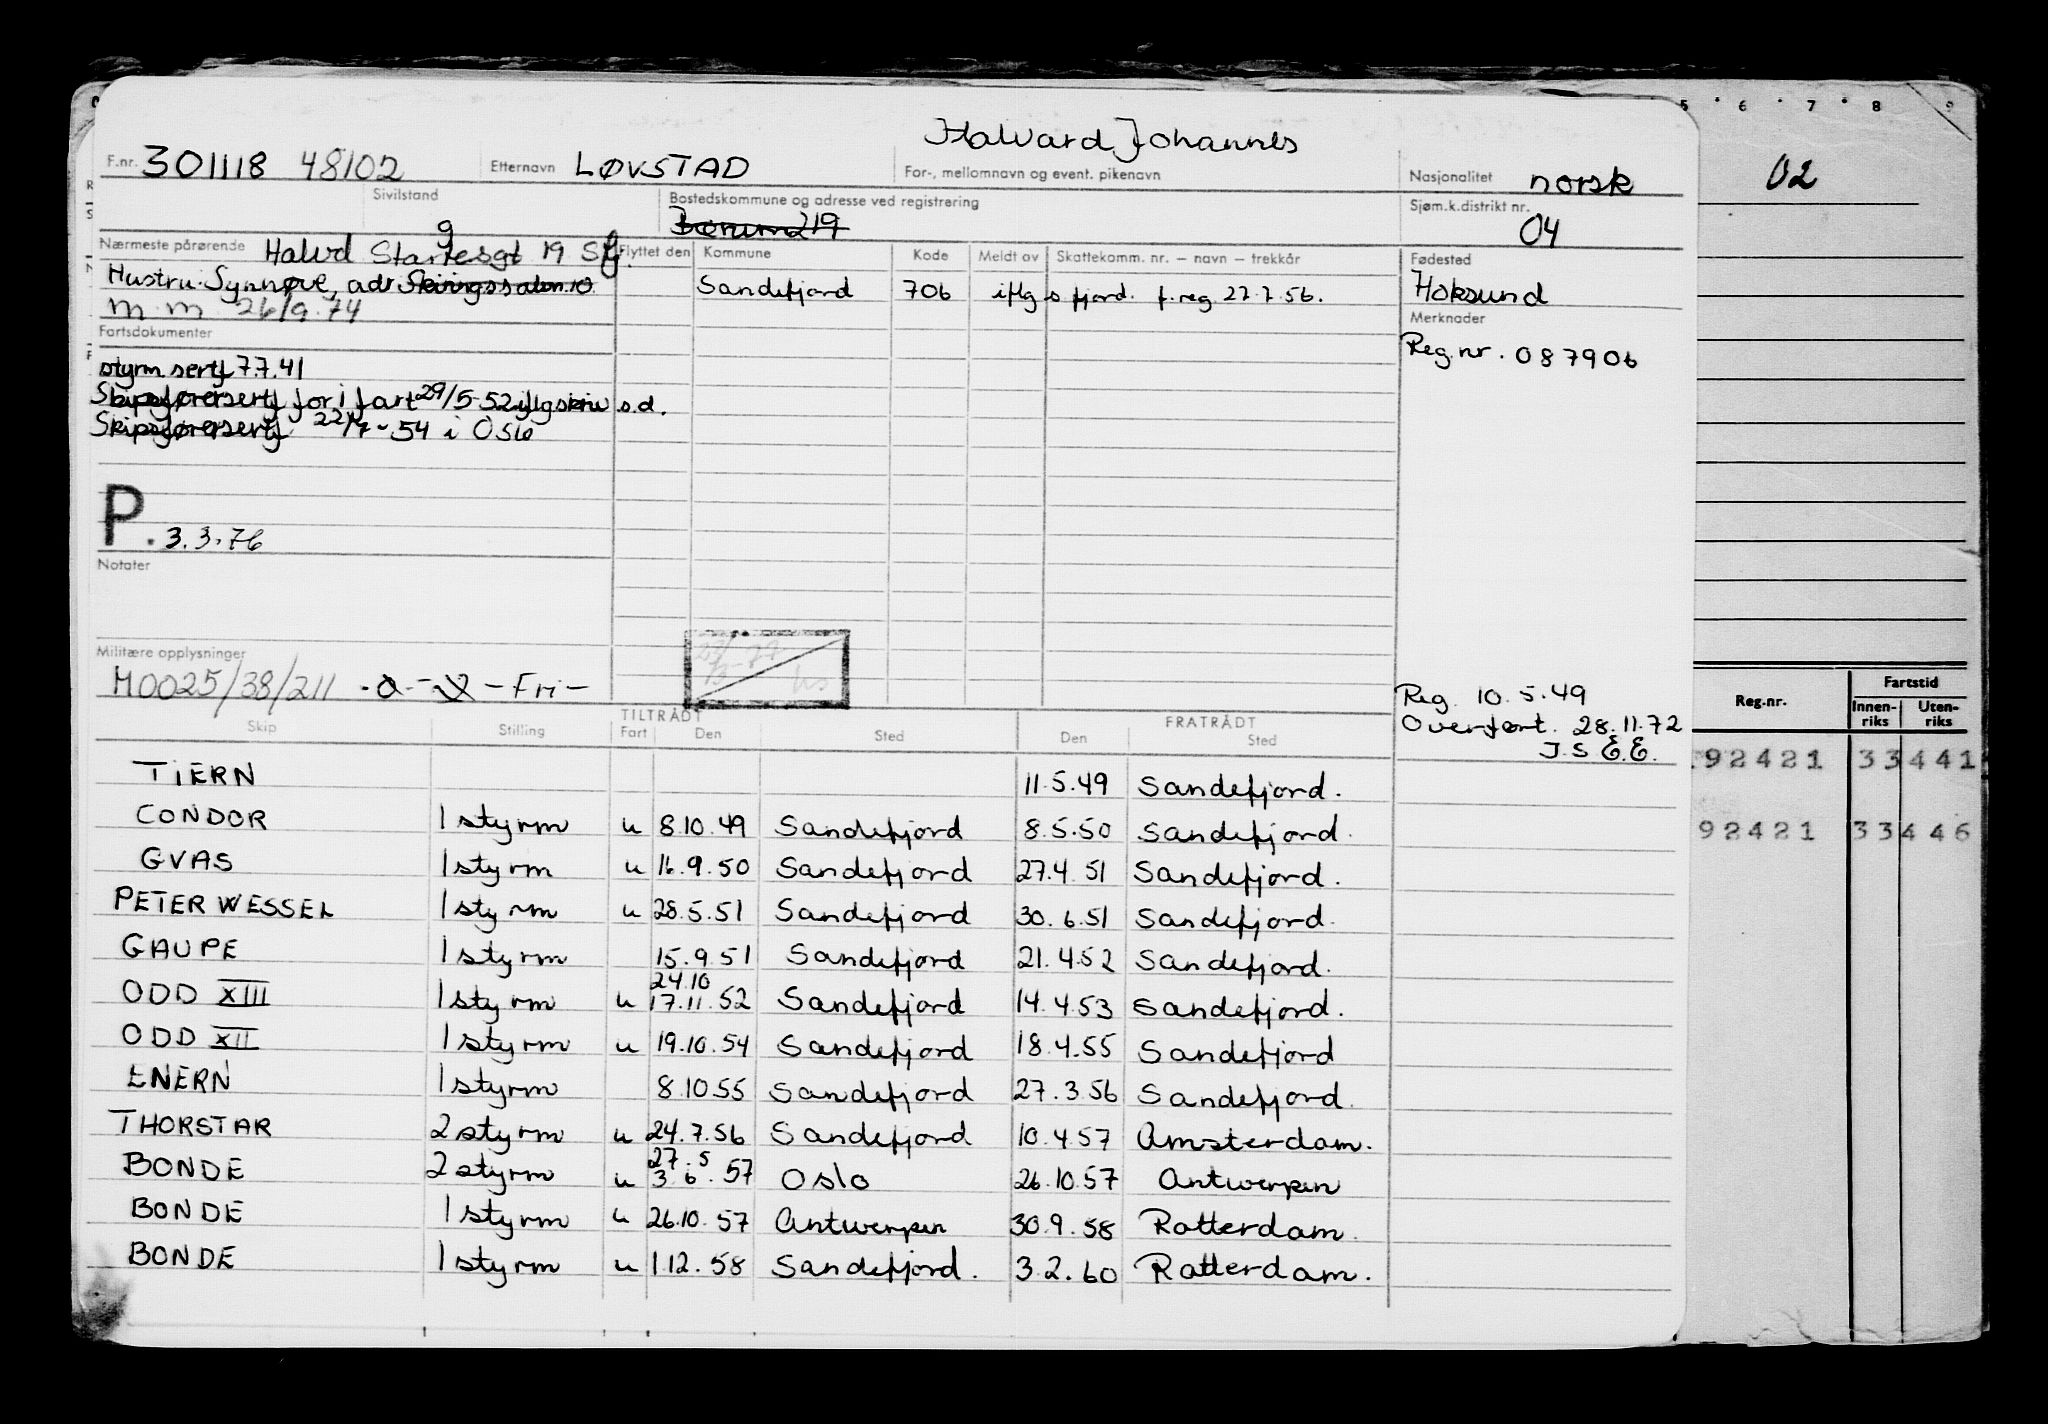 5 6 7 8 9
Halvard Johannes
F.nr. 301118 48102 Etternavn LØVSTAD For-, mellomnavn og event. pikenavn Nasjonalitet norsk 02
Sivilstand g Bostedskommune og adresse ved registrering Bærum 219 Sjøm.k.distrikt nr. 04
Nærmeste pårørende Halvd Startesgt 19 Sfj. Flyttet den Kommune Kode Meldt av Skattekomm. nr. – navn – trekkår Fødested
Hustru: Synnøve, adr Skiringssalsn. 10 Sandefjord 706 iflg s fjord. f. reg 27.7.56. Hoksund
m.m 26/9.74 Merknader
Fartsdokumenter Reg.nr. 087906
styrm.sertf 7.7.41
Skipsførersertf for i fart 29/5-52 iflg skriv s.d.
Skipsførersertf 22/7-54 i Oslo
P. 3.3.76
Notater
Militære opplysninger
H0025/38/211 -Fri-
Reg. 10.5.49
Overført. 28.11.72
J.S E.E.
Reg.nr. Fartstid
Innen-riks Uten-riks
TILTRÅDT FRATRÅDT
Skip Stilling Fart Den Sted Den Sted
92421 33441
TIERN 11.5.49 Sandefjord.
CONDOR 1 styrm u 8.10.49 Sandefjord 8.5.50 Sandefjord. 92421 33446
GVAS 1 styrm u 16.9.50 Sandefjord 27.4.51 Sandefjord.
PETER WESSEL 1 styrm u 28.5.51 Sandefjord 30.6.51 Sandefjord.
GAUPE 1 styrm 15.9.51 Sandefjord 21.4.52 Sandefjord.
24.10
ODD XIII 1 styrm u 17.11.52 Sandefjord 14.4.53 Sandefjord.
ODD XII 1 styrm u 19.10.54 Sandefjord 18.4.55 Sandefjord
ENERN 1 styrm 8.10.55 Sandefjord 27.3.56 Sandefjord.
THORSTAR 2 styrm u 24.7.56 Sandefjord 10.4.57 Amsterdam.
27.5
BONDE 2 styrm u 3.6.57 Oslo 26.10.57 Antwerpen
BONDE 1 styrm u 26.10.57 Antwerpen 30.9.58 Rotterdam.
BONDE 1 styrm u 1.12.58 Sandefjord. 3.2.60 Rotterdam.